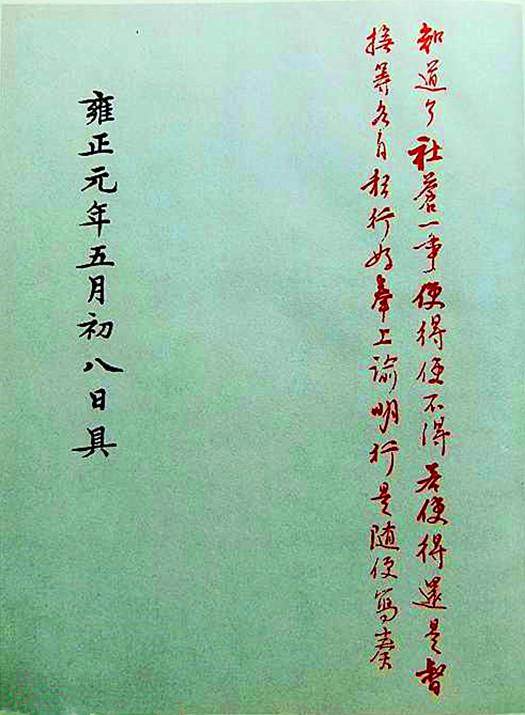 知道了社蒼一事使得使不得若使得還是督
撫等各自power行好奉上諭明行是随便寫奏
雍正元年五月初八日具